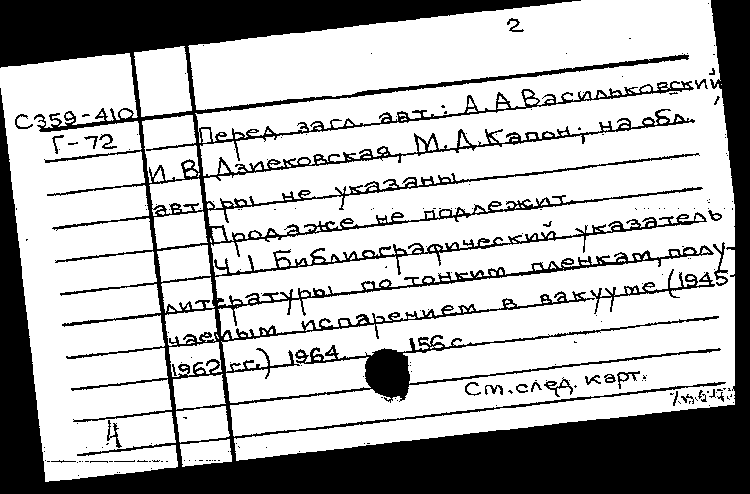 2
С359-410
Г-72
Перед загл. авт.: А.А Васильковский,
И.В. Дзпековская, М.Д. Капон; на обл.
авторы не указаны.
Продаже не подлежит.
Ч.1 Библиографический указатель
литературы по тонким пленкам, полу-
чаемым испарением в вакууме (1945-
1962 гг.) 1964 156 с.
См. след. карт.
4